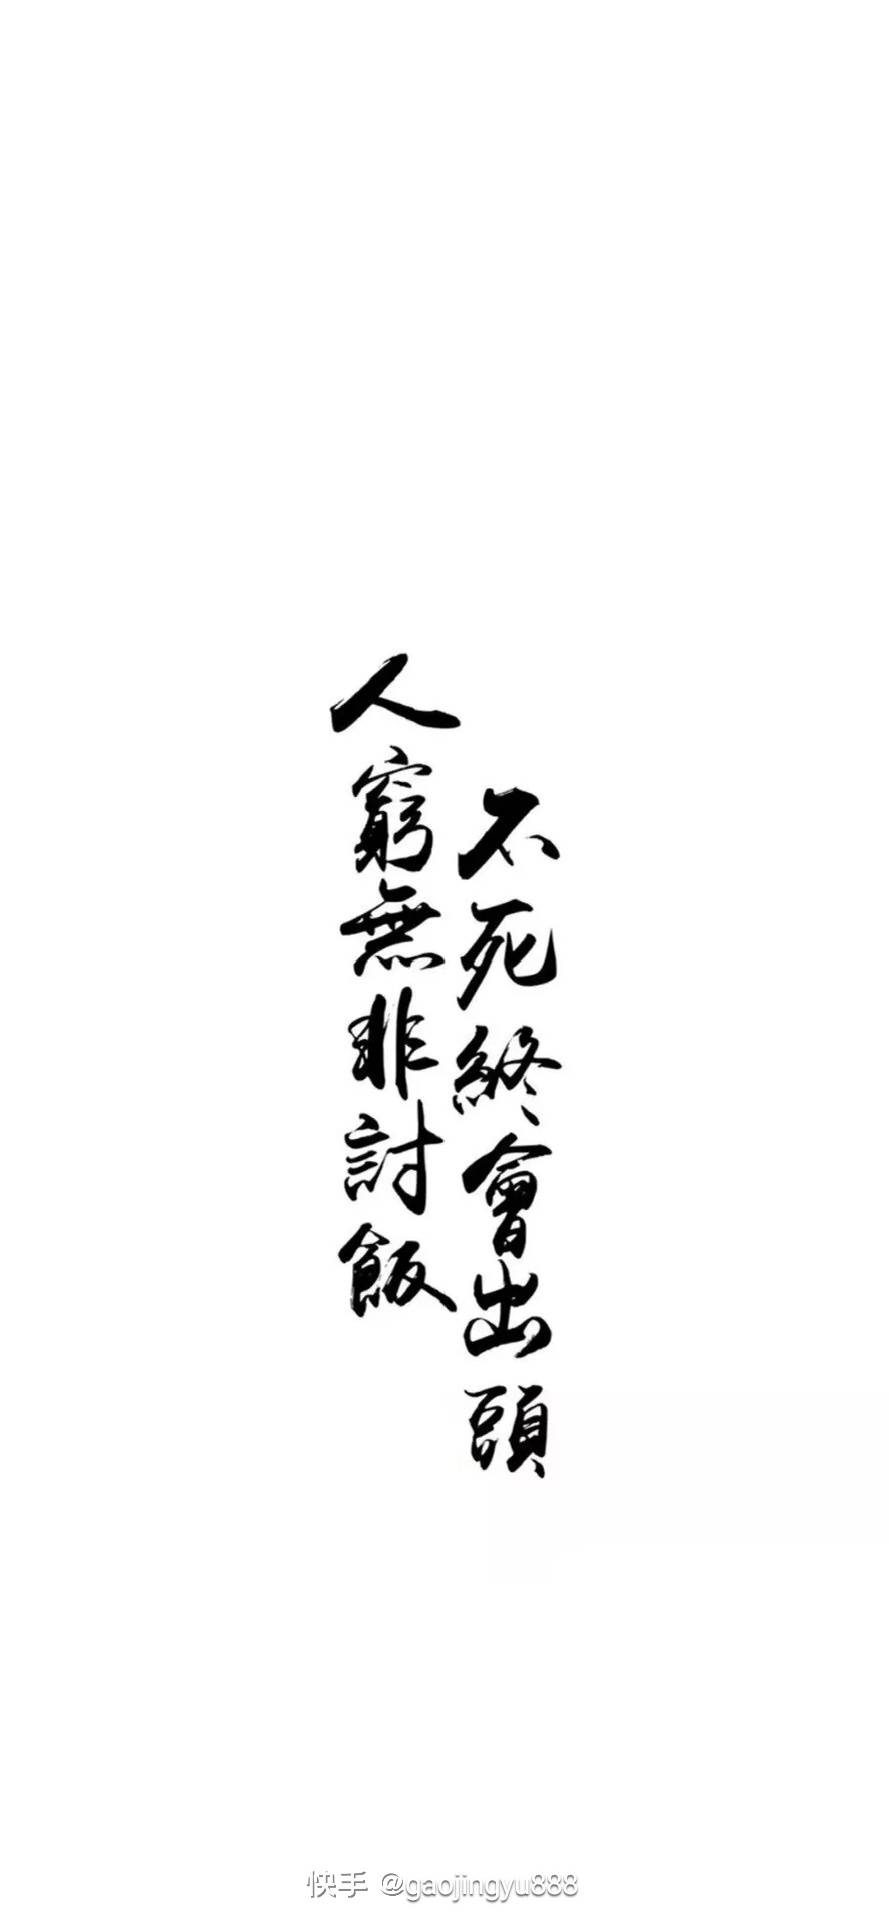 人窮無非討飯
不死終會出頭
快手 @gaojingyu888